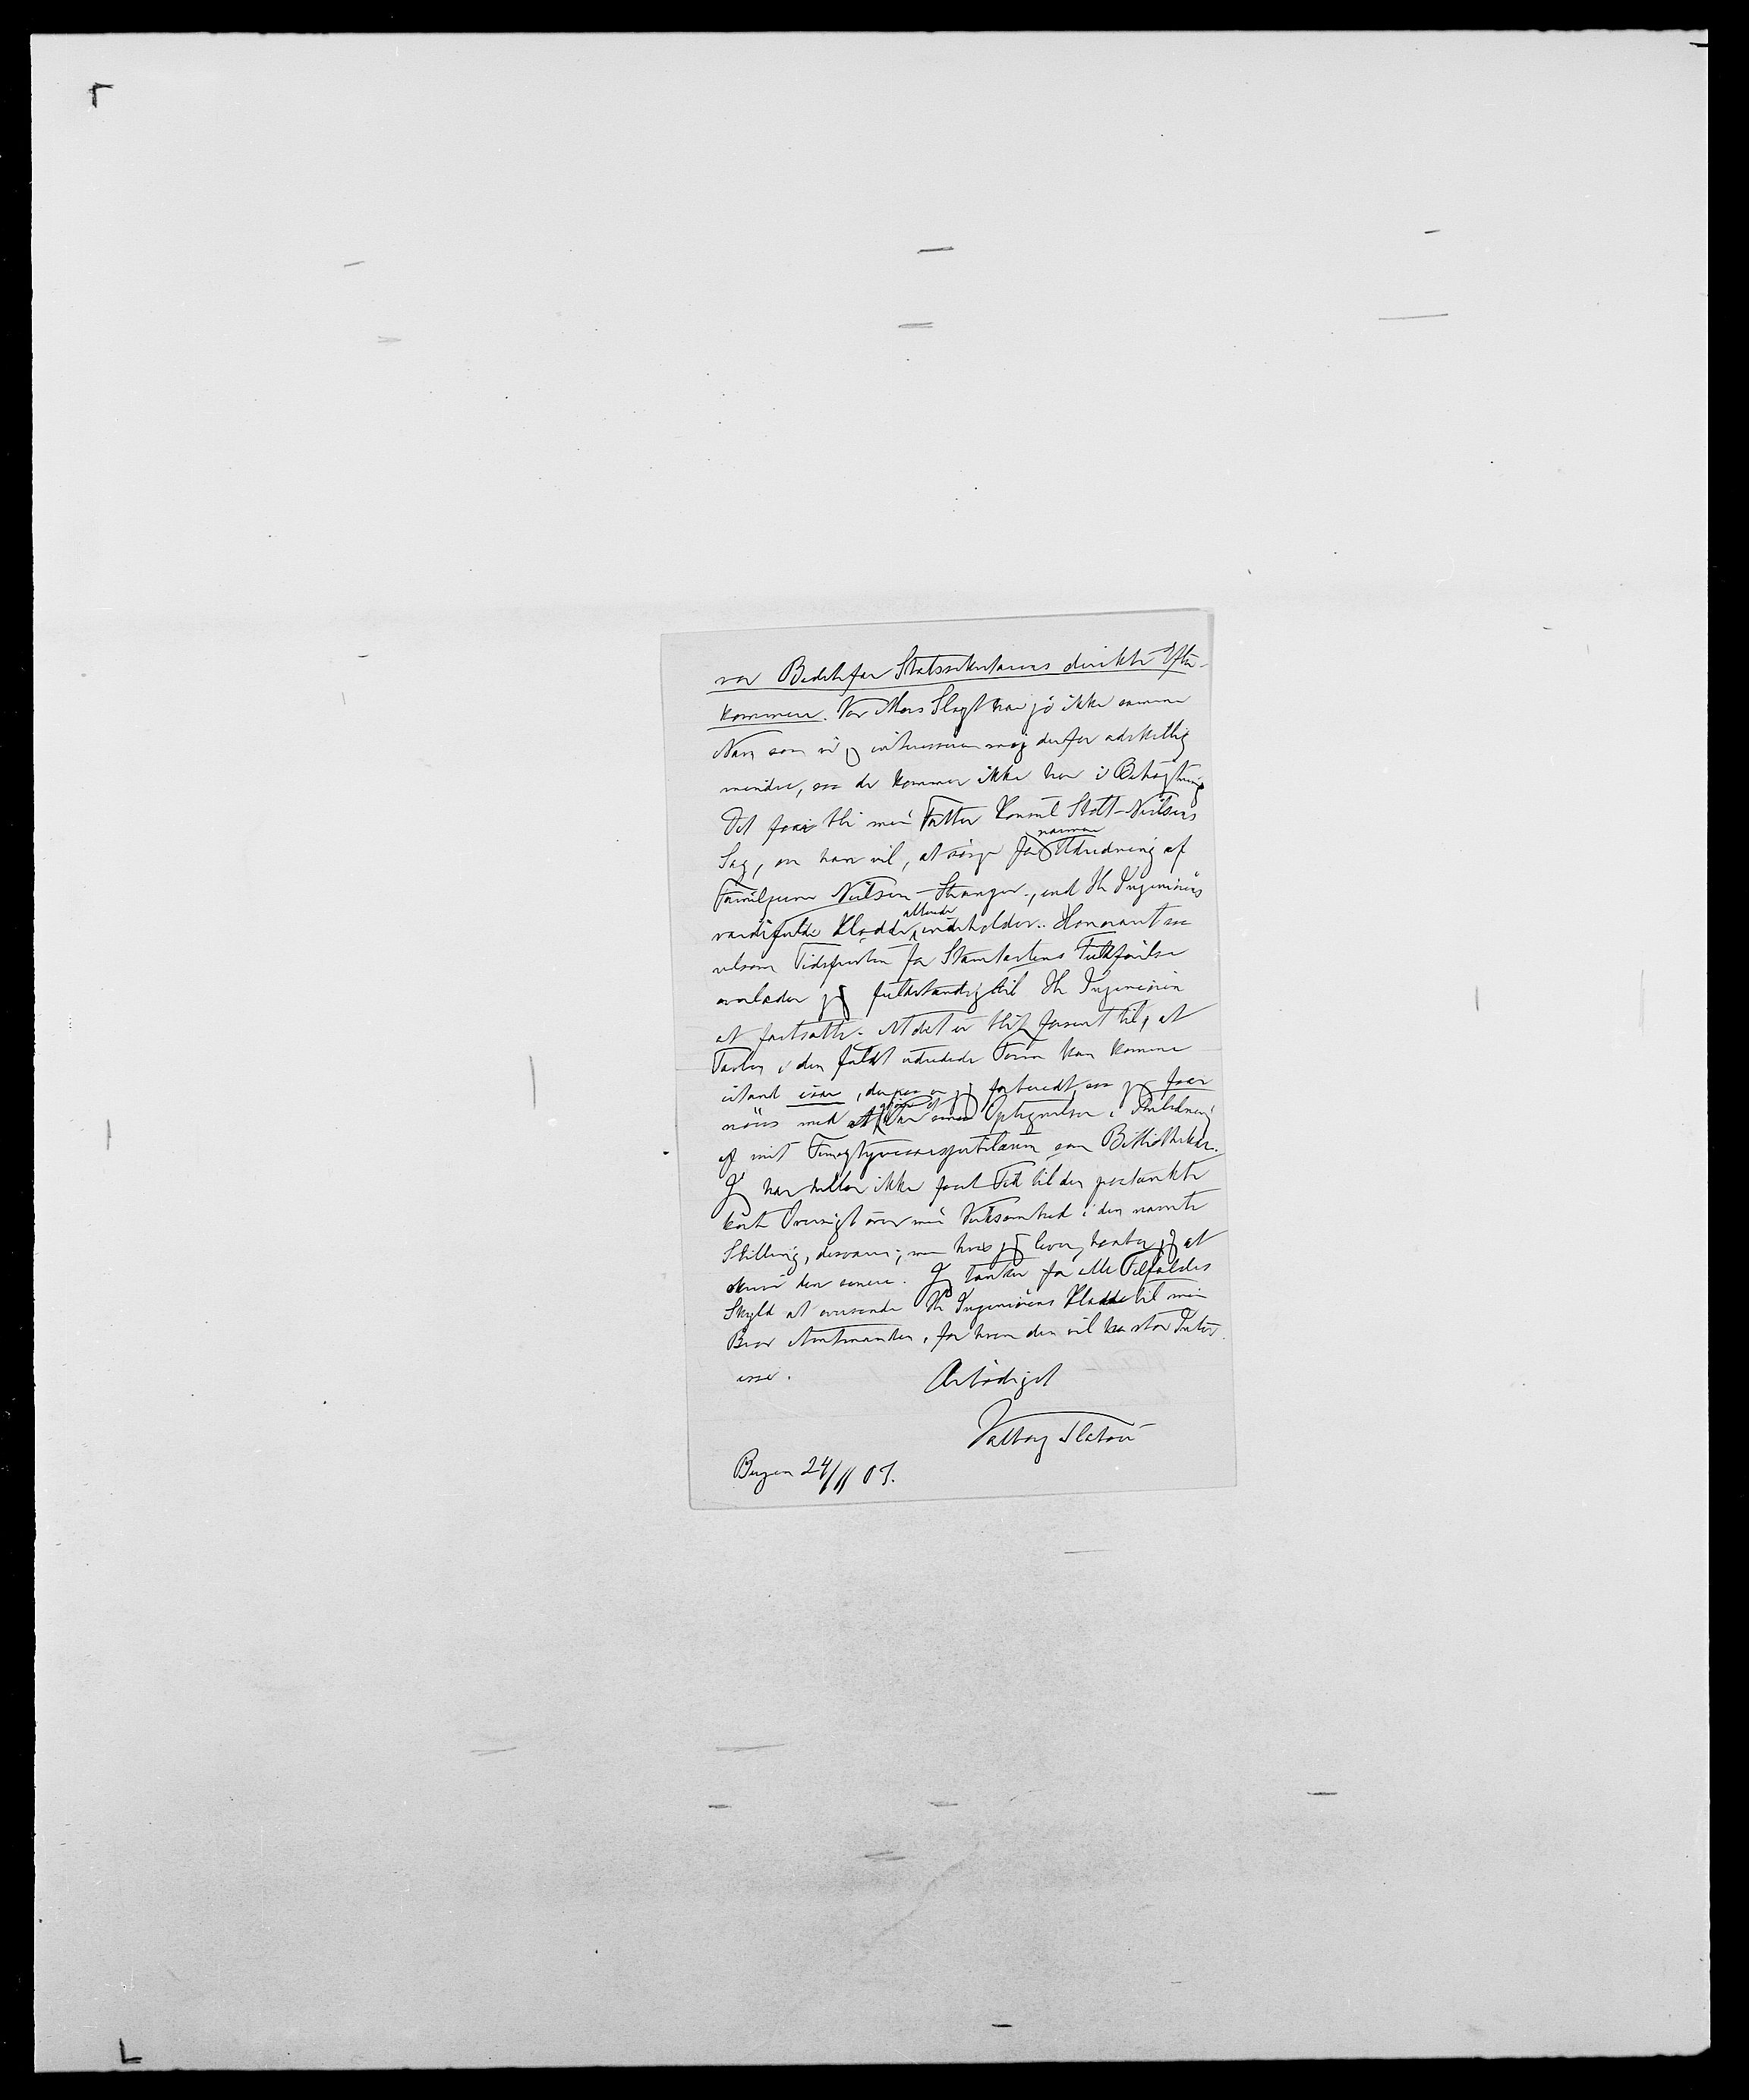 vor Bedstefar Statssekretærens direkte Efter-
kommere. Vor Mors Slægt har jo ikke samme
Navn som vi og interesserer mig derfor adskillig
mindre, saa de kommer ikke her i Betragtning
Det faar bli min Fætter Konsul Stolt-Nielsens
Sag, om han vil, at sørge for nærmere Udredning af
Familjerne Nielsen-Stranger, end Hr Ingeniørens
værdifulde Kladde allerede indeholder. Honoraret saa
velsom Tidsfristen for Stamtavlens Fuldførelse
overlader jeg fuldstændig til Hr Ingeniøren
at fastsætte. At det er blit forsent til, at
Tavlen i den fuldt udredede Form kan komme
istand iaar, derpaa er jeg forberedt, saa jeg faar
nøies med at Optegnelser i Anledning
af mit Femogtyveaarsjubilæum som Bibliothekar.
Jeg har heller ikke faat Tid til den paatænkte
korte Oversigt over min Virksomhed i den nævnte
Stilling, desværre; men hvis jeg lever, haaber jeg at
skrive den senere. Jeg tænker for alle Tilfældes
Skyld at oversende Hr Ingeniørens Kladde til min
Bror Amtmanden, for hvem den vil ha stor Inter-
esse.
Ærbødigst
Valborg Platou
Bergen 24/11 07.